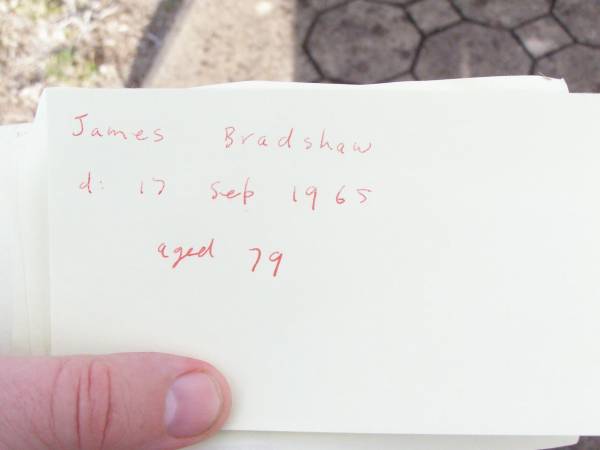 James Bradshaw
d: 17 Sep 1965
aged 79